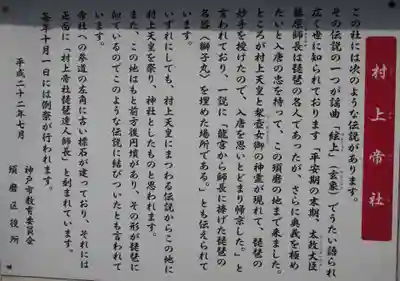 村上帝社
この社には次のような伝説があります。
その伝説の一つが謡曲「絃上」(玄象)でうたい語られ
広く世に知られております「平安期の末期、太政大臣
藤原師長は琵琶の名人であったが、さらに奥義を極め
たいと入唐の志を持って、この須磨の地まで来ました。
ところが村上天皇と梨壺女御の神霊が現れて、琵琶の
妙手を授けたので、入唐を思いとどまり帰京した。」と
言われており、一説に「龍宮から師長に捧げた琵琶の
名器(獅子丸)を埋めた場所である。」とも伝えられて
います。
いずれにしても、村上天皇にまつわる伝説からこの地に
村上天皇を祭り、神社としたものと思われます。
また、この地はもと前方後円墳があり、その形が琵琶に
似ているのでこのような伝説に結びついたとも言われて
います。
帝社への参道の左角に古い標石が建っており、それには
正面に「村上帝社琵琶達人師長」と刻まれています。
毎年十月一日には例祭が行われます。
平成二十二年七月
神戸市教育委員会
須磨区役所